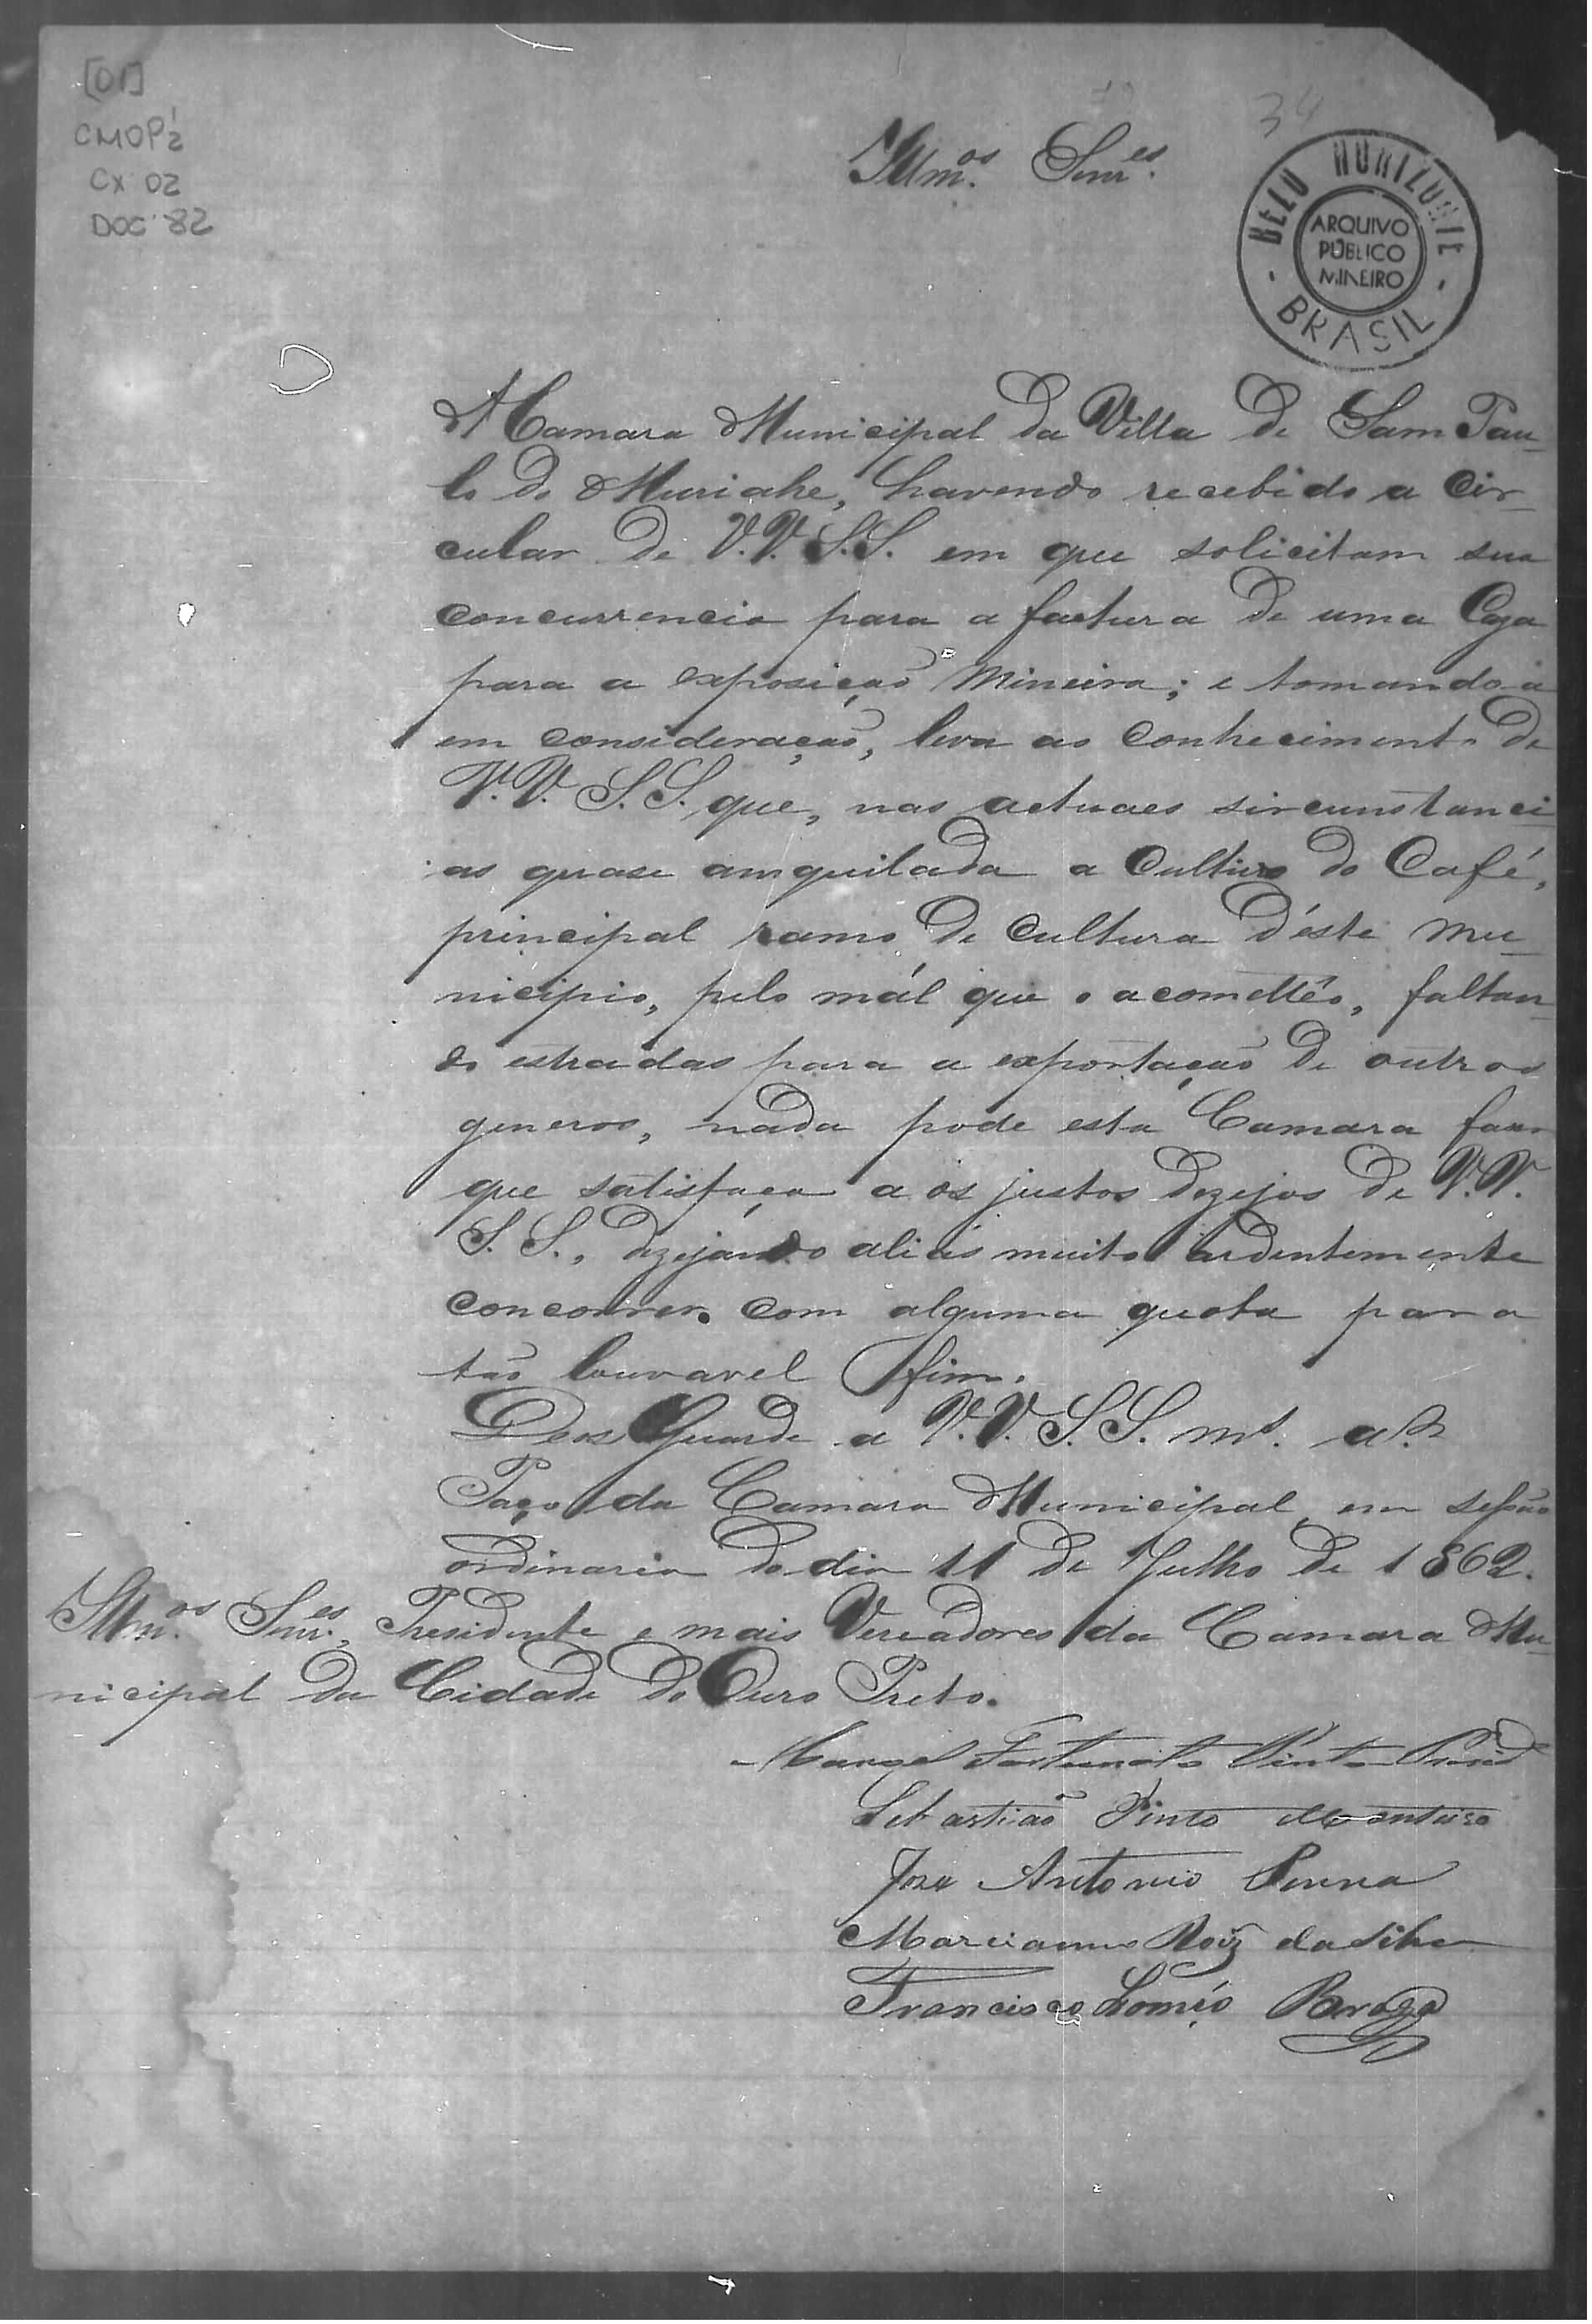 [01]
CMOP 2
CX 02
DOC 82
34
Illm.os Snr.es
BELO HORIZONTE
ARQUIVO
PÚBLICO
MINEIRO
BRASIL
A Camara Municipal da Villa de Sam Pau-
lo do Muriahe, havendo recebido a Cir-
cular de V.V. S.S. em que solicitam sua
concurrencia para a factura de uma Caza
para a exposição Mineira; e tomando-a
em consideração, leva ao conhecimento de
V.V. S.S. que, nas actuaes sircunstanci-
as quase aniquilada a Cultura do Café,
principal ramo de Cultura d'éste Mu-
nicipio, pelo mál que o acometteo, faltan-
do estradas para a exportação de outros
generos, nada pode esta Camara fazer
que satisfaça a os justos dezejos de V.V.
S.S., dezejando aliás muito ardentemente
concorrer com alguma quota para
tão louvavel fim.
Deos Guarde a V.V. S.S. m.s a.s
Paço da Camara Municipal em sessão
ordinaria do dia 11 de Julho de 1862.
Illm.os Snr.es Presidente e mais Vereadores da Camara Mu-
nicipal da Cidade do Ouro Preto.
Manoel Fortunato Pinto Presid
Sebastião Pinto Monteiro
Jose Antonio Penna
Marcianno Roiz da Silva
Francisco Braga